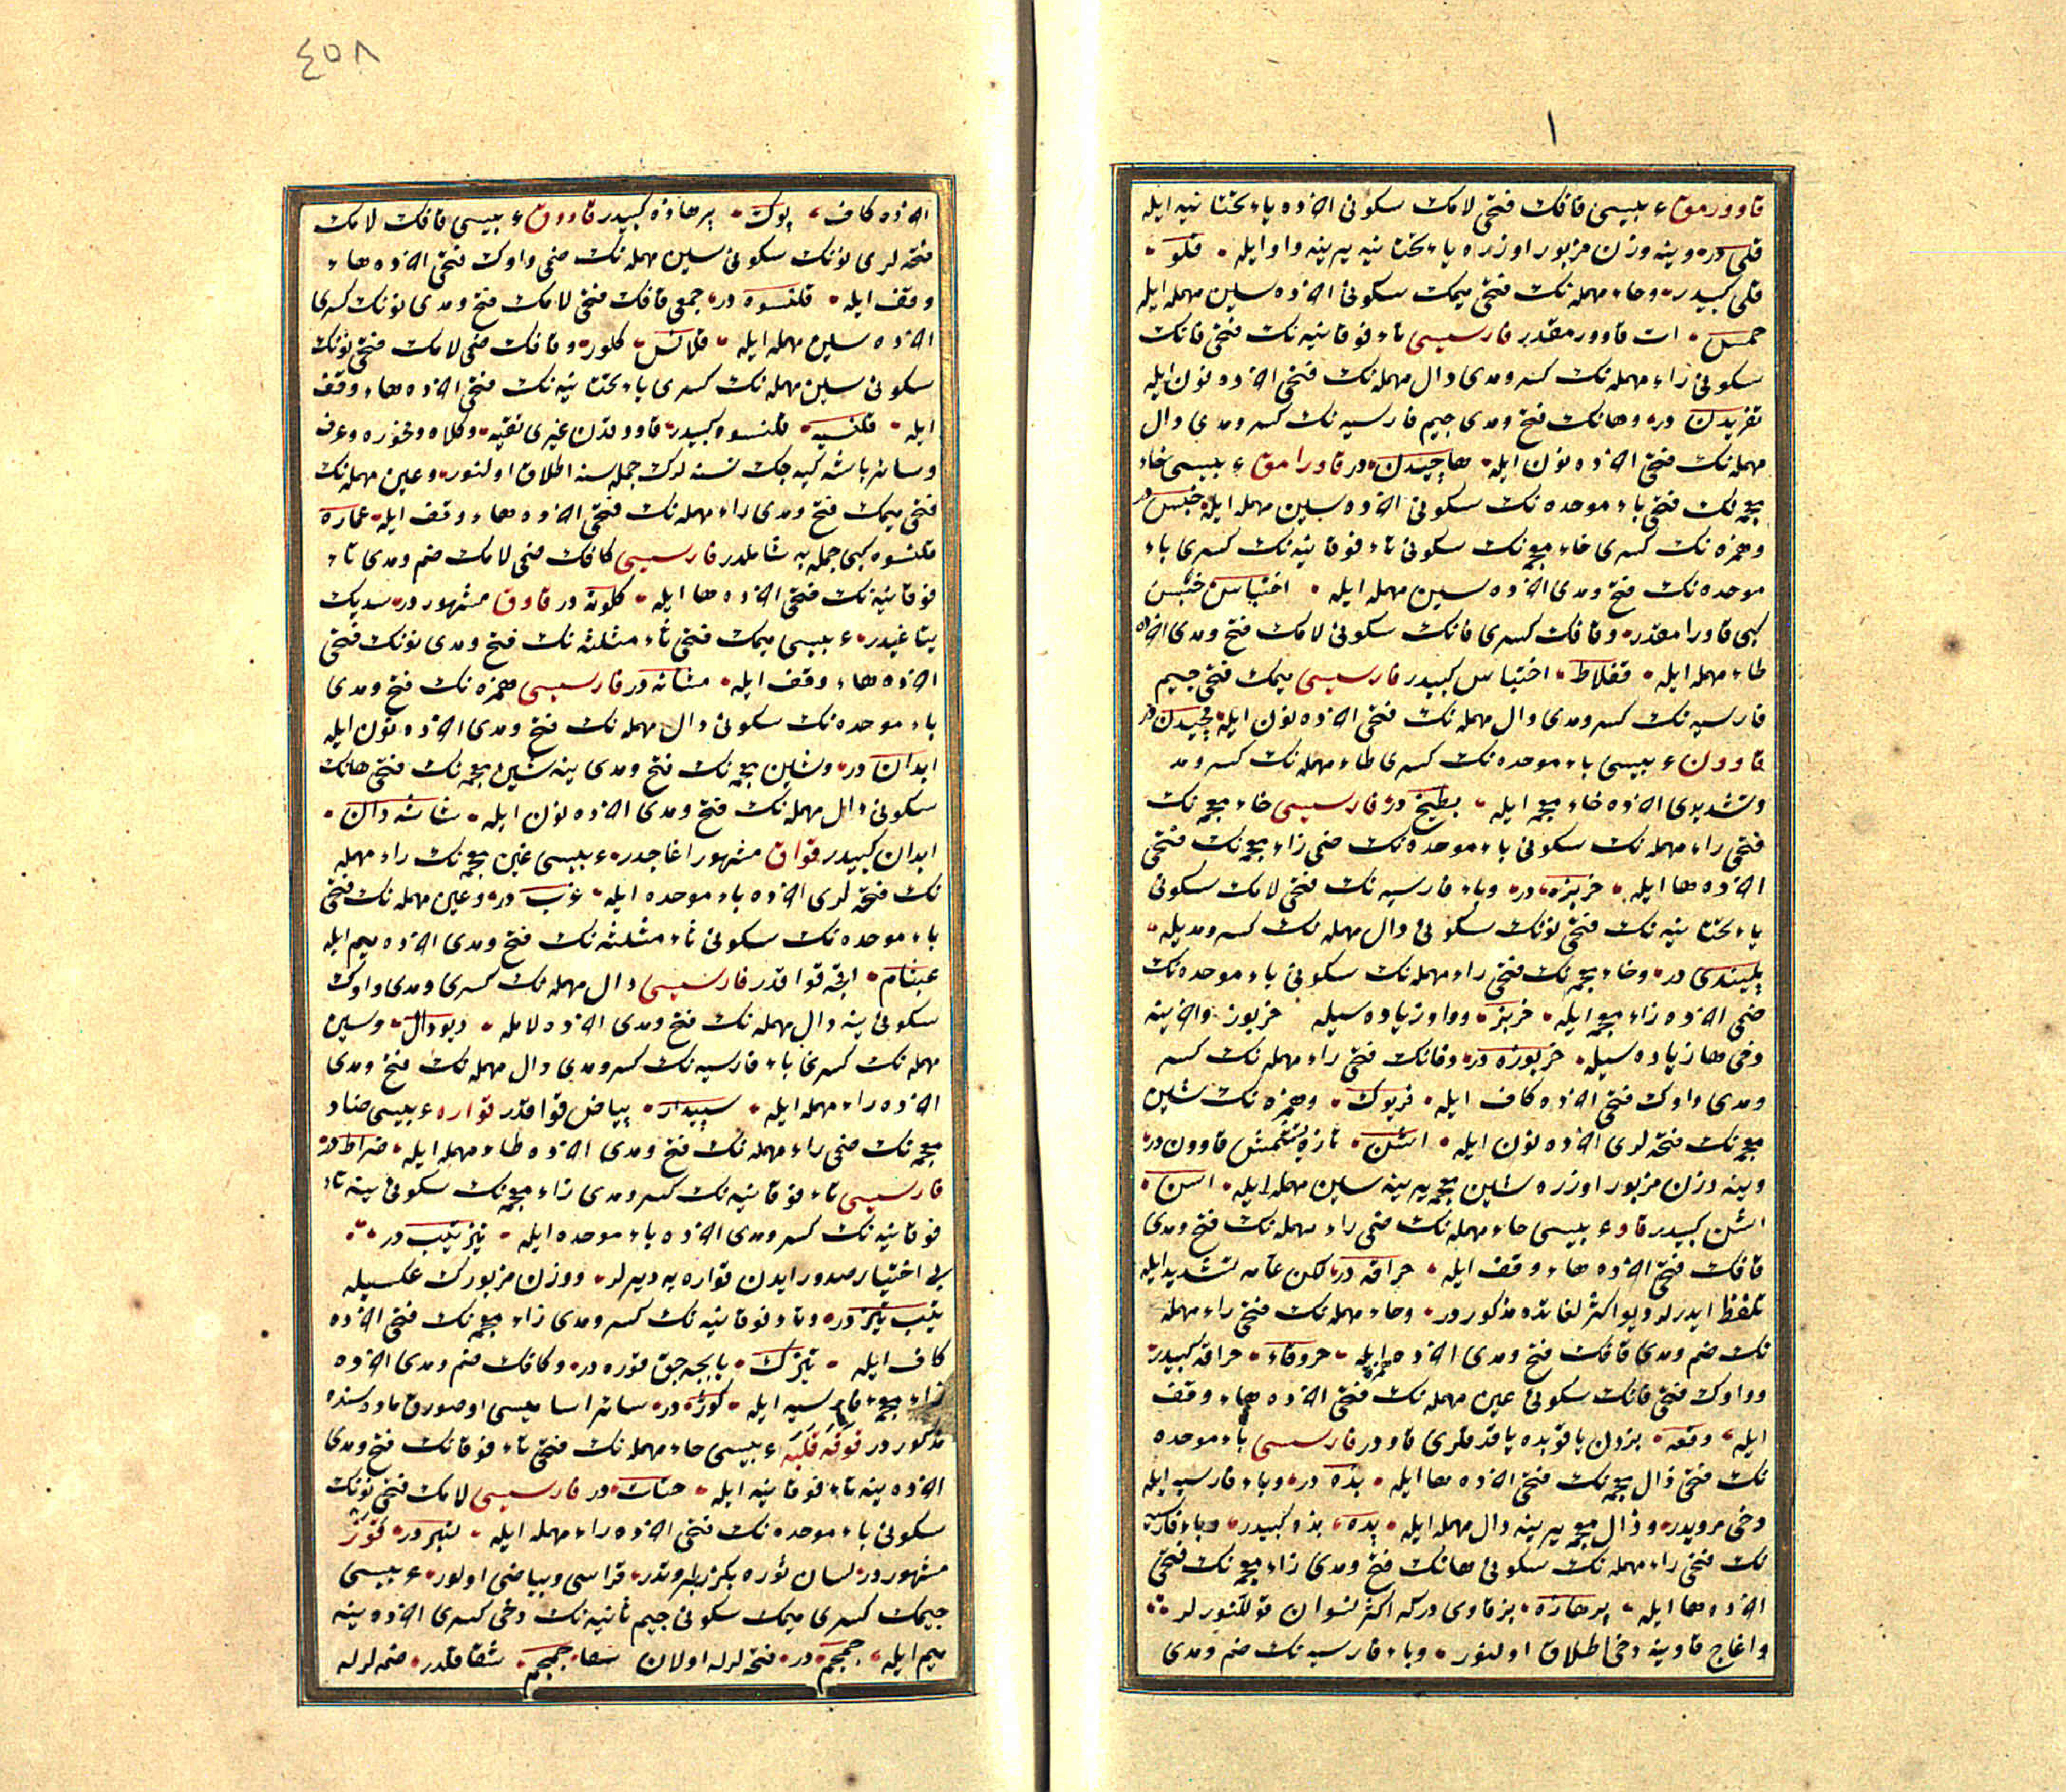 ١
قاوورمق عربیسی قافك فتحی لامك سكونی اخرده یاء تحتانیه ایله
قلی در وینه وزن مزبور اوزره یاء تحتانیه یرینه واو ایله قلو
قلی كبیدر وحاء مهمله نك فتحی میمك سكونی اخرده سین مهمله ایله
حمس ات قاوورمقدر فارسیسی تاء فوقانیه نك فتحی فانك
سكونی راء مهمله نك كسر ومدی دال مهمله نك فتحی اخرده نون ایله
تفریدن در وهانك فتح ومدی جیم فارسیه نك كسر ومدی دال
مهمله نك فتحی اخرده نون ایله هاچیدن در قاورامق عربیسی خاء
معجمه نك فتحی باء موحده نك سكونی اخرده سین مهمله ایله خبس در
وهمزه نك كسری خاء معجمه نك سكونی تاء فوقانیه نك كسری باء
موحده نك فتح ومدی اخرده سین مهمله ایله اختباس خبس
كبی قاورامقدر وقافك كسری فانك سكونی لامك فتح ومدی اخرده
طاء مهمله ایله قفلاط اختباس كبیدر فارسیسی میمك فتحی جیم
فارسیه نك كسر ومدی دال مهمله نك فتحی اخرده نون ایله مچیدن در
قاوون عربیسی باء موحده نك كسری طاء مهمله نك كسر ومد
وتشدیدی اخرده خاء معجمه ایله بطیخ در فارسیسی خاء معجمه نك
فتحی راء مهمله نك سكونی باء موحده نك ضمی زاء معجمه نك فتحی
اخرده ها ایله خربزه در وباء فارسیه نك فتحی لامك سكونی
یاء تحتانیه نك فتحی نونك سكونی دال مهمله نك كسر ومدیله
پلیندی در وخاء معجمه نك فتحی راء مهمله نك سكونی باء موحده نك
ضمی اخرده زاء معجمه ایله خربز وواو زیاده سیله خربوز واخرینه
دخی ها زیاده سیله خربوزه در وفانك فتحی راء مهمله نك كسر
ومدی واوك فتحی اخرده كاف ایله فریوك وهمزه نك شین
معجمه نك فتحه لری اخرده نون ایله اشن تازه یتشمش قاوون در
وینه وزن مزبور اوزره شین معجمه یرینه سین مهمله ایله اسن
اشن كبیدر قاو عربیسی حاء مهمله نك ضمی راء مهمله نك فتح ومدی
قافك فتحی اخرده هاء وقف ایله حراقه در لكن عامه تشدید ایله
تلفظ ایدرلر دیو اكثر لغاتده مذكور در وحاء مهمله نك فتحی راء مهمله
نك ضم ومدی قافك فتح ومدی اخرده همزه ایله حروقاء حراقه كبیدر
وواوك فتحی فانك سكونی عین مهمله نك فتحی اخرده هاء وقف
ایله وفعه بزدن یا قوبده یاقدقلری قاودر فارسیسی باء موحده
نك فتحی ذال معجمه نك فتحی اخرده ها ایله بذه در وباء فارسیه ایله
دخی مرویدر وذال معجمه یرینه دال مهمله ایله پده بذه كبیدر وباء فارسیه
نك فتحی راء مهمله نك سكونی هانك فتح ومدی زاء معجمه نك فتحی
اخرده ها ایله پرهازه بز قاوی دركه اكثر نسوان قوللنورلر
واغاج قاوینه دخی اطلاق اولنور وباء فارسیه نك ضم ومدی
٤٥٨
اخرده كاف پوك پرهازه كبیدر قاووق عربیسی قافك لامك
فتحه لری نونك سكونی سین مهمله نك ضمی واوك فتحی اخرده هاء
وقف ایله قلنسوه در جمعی قافك فتحی لامك فتح ومدی نونك كسری
اخرده سین مهمله ایله قلانس كلور وقافك ضمی لامك فتحی نونك
سكونی سین مهمله نك كسری یاء تحتانیه نك فتحی اخرده هاء وقف
ایله قلنسیه قلنسوه كبیدر قاووقدن غیری تقیه وكلاه وفخوره وعرف
وسائر باشه كیه جك نسنه لرك جمله سنه اطلاق اولنور وعین مهمله نك
فتحی میمك فتح ومدی راء مهمله نك فتحی اخرده هاء وقف ایله عماره
قلنسوه كبی جمله یه شاملدر فارسیسی كافك ضمی لامك ضم ومدی تاء
فوقانیه نك فتحی اخرده ها ایله كلوته در قاوق مشهور در سدیك
یتاغیدر عربیسی میمك فتحی ثاء مثلثه نك فتح ومدی نونك فتحی
اخرده هاء وقف ایله مثانه در فارسیسی همزه نك فتح ومدی
باء موحده نك سكونی دال مهمله نك فتح ومدی اخرده نون ایله
ابدان در وشین معجمه نك فتح ومدی ینه شین معجمه نك فتحی هانك
سكونی دال مهمله نك فتح ومدی اخرده نون ایله شاشه دان
ابدان كبیدر قواق مشهور اغاجدر عربیسی غین معجمه نك راء مهمله
نك فتحه لری اخرده باء موحده ایله غرب در وعین مهمله نك فتحی
باء موحده نك سكونی ثاء مثلثه نك فتح ومدی اخرده میم ایله
عبثام اقچه قواقدر فارسیسی دال مهمله نك كسری ومدی واوك
سكونی ینه دال مهمله نك فتح ومدی اخرده لامله دیودال وسین
مهمله نك كسری باء فارسیه نك كسر ومدی دال مهمله نك فتح ومدی
اخرده راء مهمله ایله سپیدار بیاض قواقدر قواره عربیسی ضاد
معجمه نك ضمی راء مهمله نك فتح ومدی اخرده طاء مهمله ایله ضراط در
فارسیسی تاء فوقانیه نك كسر ومدی زاء معجمه نك سكونی ینه تاء
فوقانیه نك كسر ومدی اخرده باء موحده ایله تیز تیب در
بی اختیار صدور ایدن قواره یه دیرلر ووزن مزبورك عكسیله
تیب تیز در وتاء فوقانیه نك كسر ومدی زاء معجمه نك فتحی اخرده
كاف ایله تیزك یابجه جق قوره در وكافك ضم ومدی اخرده
زاء معجمه فارسیه ایله كوژ در سائر اسامیسی اوصورق ماده سنده
مذكور در قوقه قلبه عربیسی حاء مهمله نك فتحی تاء فوقانك فتح ومدی
اخرده ینه تاء فوقانیه ایله حتات در فارسیسی لامك فتحی نونك
سكونی باء موحده نك فتحی اخرده راء مهمله ایله لنبر در قوز
مشهور در لسان ثوره بكزر بر اوتدر قراسی وبیاضی اولور عربیسی
جیمك كسری میمك سكونی جیم ثانیه نك دخی كسری اخرده ینه
میم ایله جمجم در فتحه لرله اولان جمجم شقاقلدر ضمه لرله